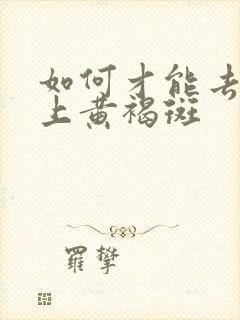 如何才能去
上黄褐斑
羅攀